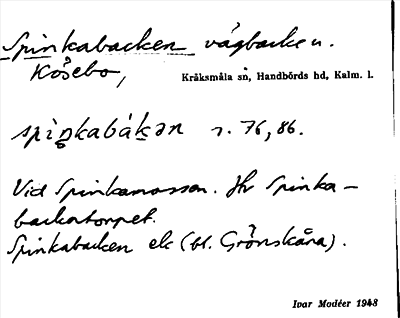 Spinkabacken vägbacken.
Kåsebo,
Kråksmåla sn, Handbörds hd, Kalm. l.
spìŋkabákən r. 76, 86.
Vid Spinkamossan. Jfr Spinka-
backatorpet.
Spinkabacken ek (bl. Grönskåra).
Ivar Modéer 1948